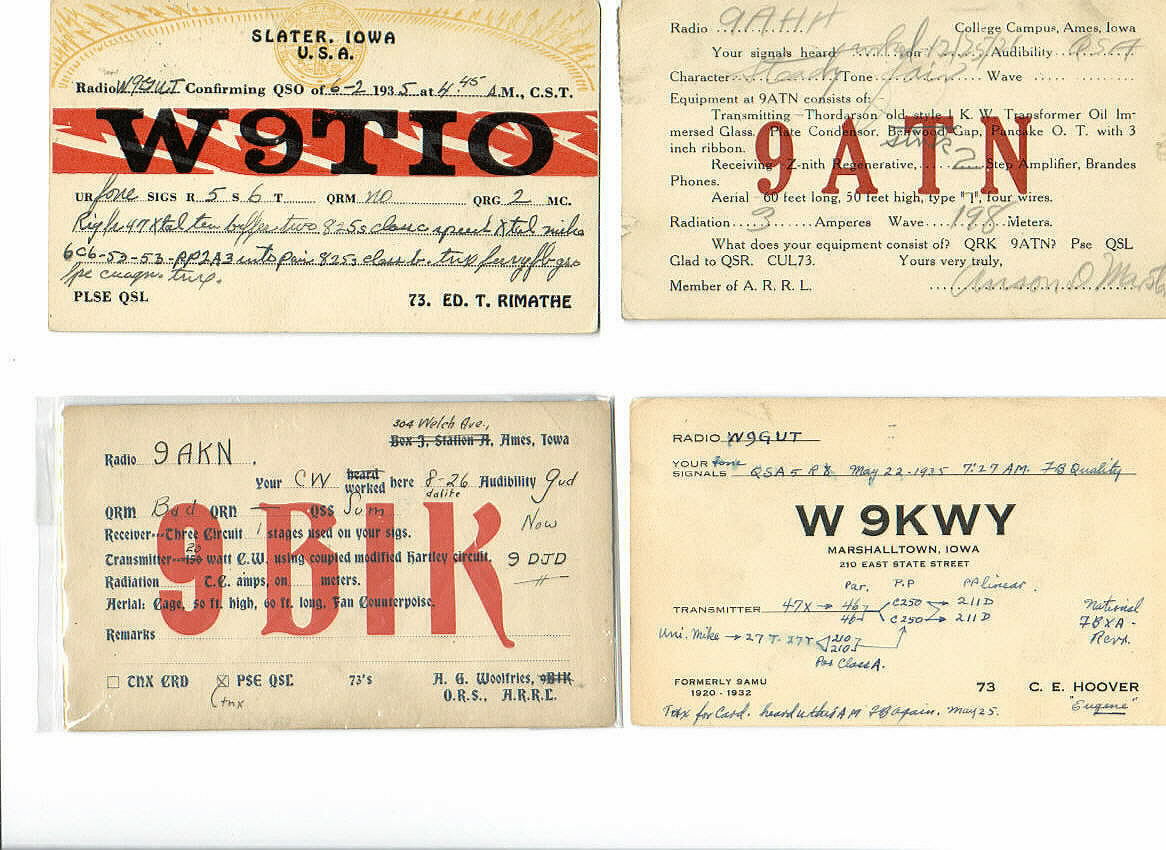 SLATER, IOWA
U.S.A.
Radio W9GUT Confirming QSO of 6-2 1935 at 4:45 A.M., C.S.T.
W9TIO
UR fone SIGS R 5 S 6 T QRM no QRG 2 MC.
Rig fr 47 Xtal ten buffer two 825s class c speech Xtal mike
6C6-53-53-PP2A3 into pair 825s class b. tnx
tnx.
PLSE QSL 73. ED. T. RIMATHE
Radio 9AHH College Campus, Ames, Iowa
Your signals heard on 12/25/ Audibility QSA
Character Steady Tone fair Wave
Equipment at 9ATN consists of:
Transmitting—Thordarson old style 1 K. W. Transformer Oil Im-
mersed Glass. Plate Condensor. Benwood Gap, Pancake O. T. with 3
inch ribbon.
Receiving Z-nith Regenerative, 2 Step Amplifier, Brandes
Phones.
9ATN
Aerial—60 feet long, 50 feet high, type "T", four wires.
Radiation 3 Amperes Wave 198 Meters.
What does your equipment consist of? QRK 9ATN? Pse QSL
Glad to QSR. CUL73. Yours very truly,
Member of A. R. R. L. Anson D Marst
304 Welch Ave.,
Box 3, Station A, Ames, Iowa
Radio 9AKN.
Your CW heard worked here 8-26 Audibility Gud
dalite
QRM Bad QRN — QSS Sum
Receiver---Three Circuit 1 stages used on your sigs. Now
20
Transmitter---150 watt C.W. using coupled modified Hartley circuit. 9DJD
9BIK
Radiation T.C. amps, on meters.
Aerial: Cage, 50 ft. high, 60 ft. long, Fan Counterpoise.
Remarks
TNX CRD PSE QSL 73's A. G. Woolfries, 9BIK
(tnx O.R.S., A.R.R.L.
RADIO W9GUT
YOUR fone
SIGNALS QSA 5 R 8 May 22-1935 7:27 AM. FB Quality
W 9KWY
MARSHALLTOWN, IOWA
210 EAST STATE STREET
Par. P.P PP linear.
TRANSMITTER 47X → 46 C250 → 211D
46 C250 → 211D
National
FBXA-
Recvr.
Uni. Mike → 27T-27T 210
210
PP Class A.
FORMERLY 9AMU
1920 - 1932
73 C. E. HOOVER
"Eugene"
Tnx for Card. heard u this AM FB again. May 25.